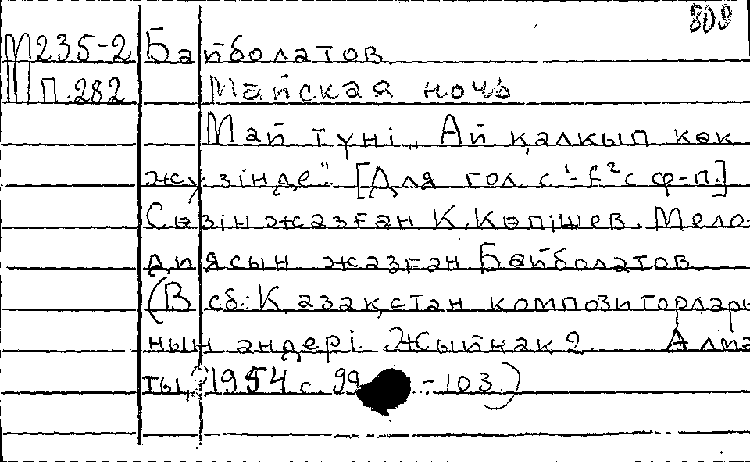 808
М235-2 Байболатов
М П.282 Майская ночь
Май түні „Ай қалқып көк
жүзінде". [Для гол. с¹-f² с ф-п.]
Сөзін жазған К. Көпішев. Мело-
диясын жазған Байболатов
(В сб: Казақстан композиторлары
ның әндері. Жыйнак 2. Алма
ты, 1954 с. 99 -103)